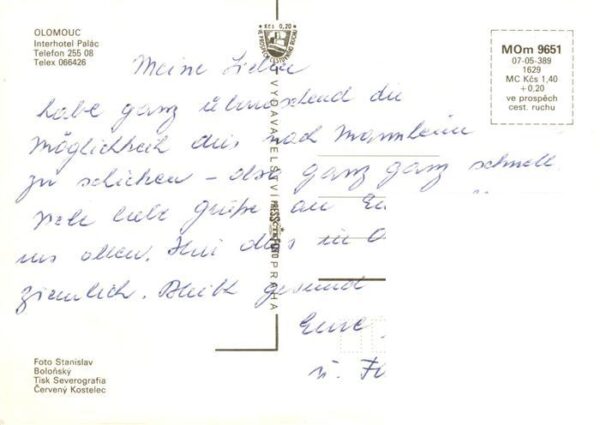 OLOMOUC
Interhotel Palác
Telefon 255 08
Telex 066426
Kčs 0,20
MOm 9651
07-05-389
1629
MC Kčs 1,40
+ 0,20
ve prospěch
cest. ruchu
Meine Lieben
habe ganz überraschend die
Möglichkeit dies nach Mannheim
zu schicken – ganz ganz schnell
viele liebe Grüße an
uns allen. das in
ziemlich. Bleibt gesund
Eure
u.
VYDAVATELSTVÍ PRAHA
Foto Stanislav
Boloňský
Tisk Severografia
Červený Kostelec